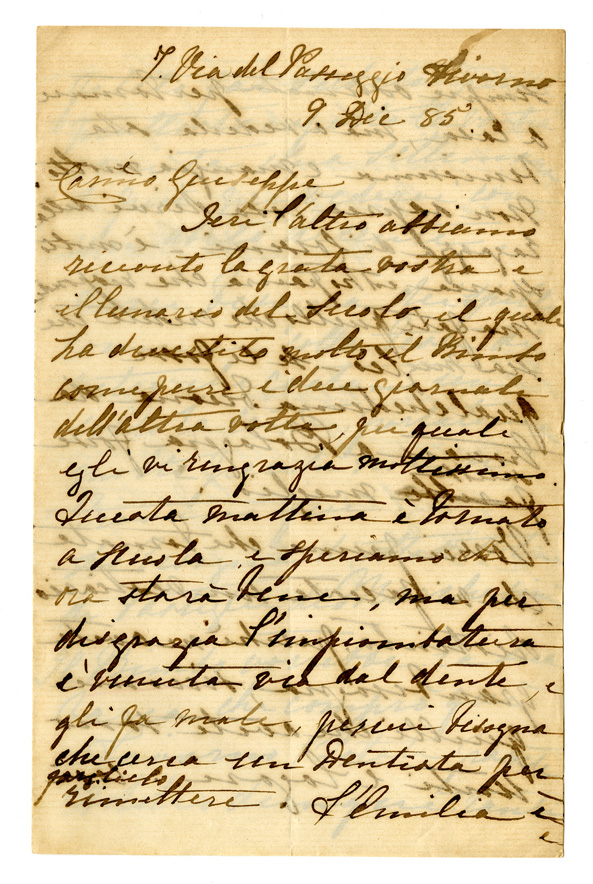 7. Via del Passeggio Livorno
9 Dic 85
Carmo Giuseppe
Ieri l'altro abbiamo
ricevuto la grata vostra e
il lunario del Secolo, il quale
ha divertito molto il Bimbo
come pure i due giornali
dell'altra volta, pei quali
egli vi ringrazia moltissimo.
Questa mattina è tornato
a scuola, e speriamo che
ora starà bene, ma per
disgrazia l'impiombatura
è venuta via dal dente, e
gli fa male, perciò bisogna
che cerca un Dentista per
farglielo
rimettere. L'Emilia è